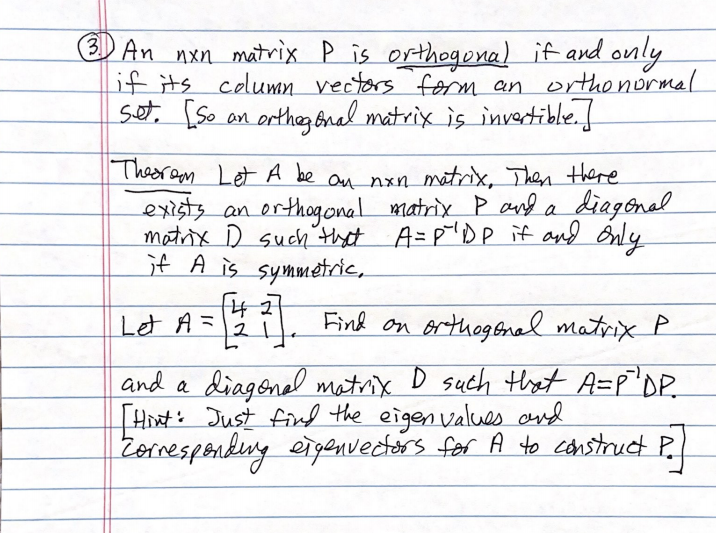 ③ An nxn matrix P is orthogonal if and only
if its column vectors form an orthonormal
set. [So an orthogonal matrix is invertible.]
Theorem Let A be an nxn matrix. Then there
exists an orthogonal matrix P and a diagonal
matrix D such that A = P⁻¹DP if and only
if A is symmetric.
Let A = [4 2
2 1]. Find an orthogonal matrix P
and a diagonal matrix D such that A=P⁻¹DP.
[Hint: Just find the eigenvalues and
corresponding eigenvectors for A to construct P.]